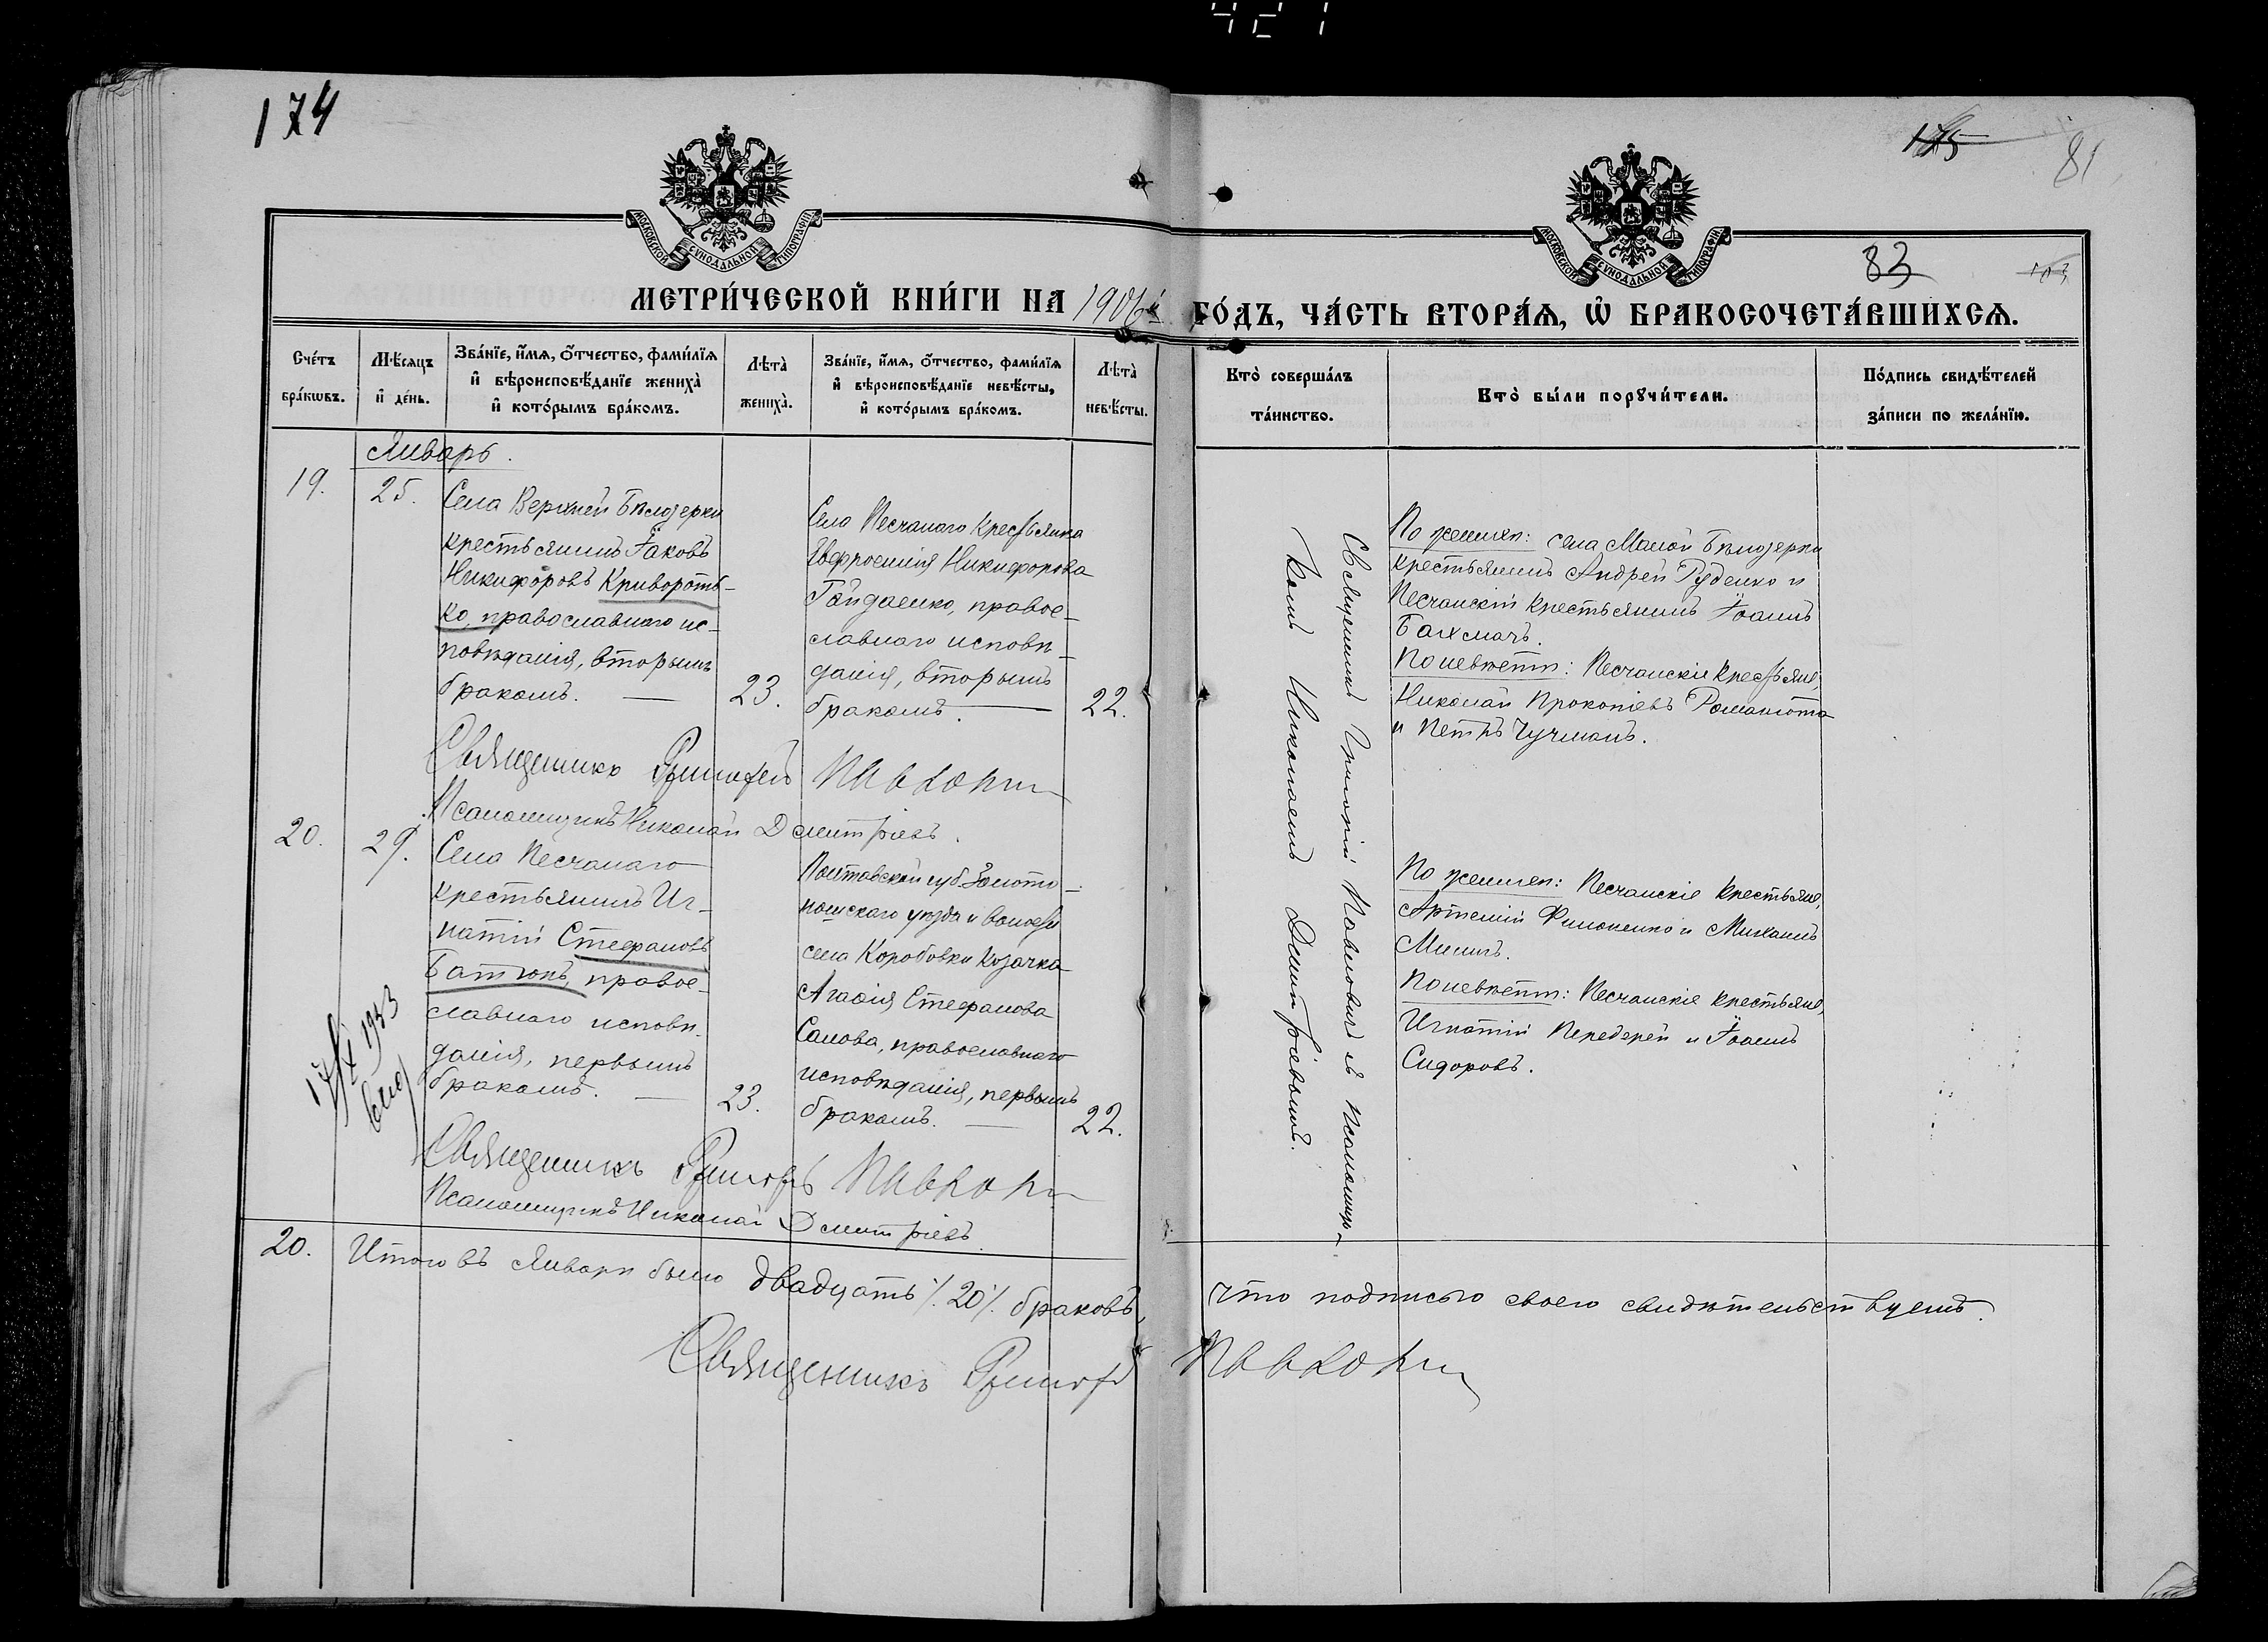 421
174
175
81
83
103
МОСКОВСКОЙ СѴНОДАЛЬНОЙ ТИПОГРАФІИ
МОСКОВСКОЙ СѴНОДАЛЬНОЙ ТИПОГРАФІИ
МЕТРИ́ЧЕСКОЙ КНИ́ГИ НА 1906й ГО́ДЪ, ЧА́СТЬ ВТОРА́Ѧ, Ѡ҆ БРАКОСОЧЕТА́ВШИХСѦ.
Сче́тъ бра́кѡвъ.
Мѣ́сяцъ и҆ де́нь.
Зва́нїе, и҆́мѧ, ѻ҆́тчество, фами́лїѧ и҆ вѣроисповѣ́данїе жениха̀ и҆ кото́рымъ бра́комъ.
Лѣта̀ жениха̀.
Зва́нїе, и҆́мѧ, ѻ҆́тчество, фами́лїѧ и҆ вѣроисповѣ́данїе невѣ́сты, и҆ кото́рымъ бра́комъ.
Лѣта̀ невѣ́сты.
Кто̀ соверша́лъ та́инство.
Кто̀ бы́ли порꙋчи́тели.
По́дпись свидѣ́телей за́писи по жела́нїю.
Январь.
19.
25.
Села Верхней Бѣлозерки
крестьянинъ Іаковъ
Никифоровъ Кривороть-
ко, православнаго ис-
повѣданія, вторымъ
бракомъ. —
23.
Села Песчанаго крестьянка
Евфросинія Никифорова
Гайдаенко, право-
славнаго исповѣ-
данія, вторымъ
бракомъ. —
22.
Священникъ Григорій Павловичъ и псаломщи-
комъ Николаемъ Димитріевымъ.
По женихѣ: села Малой Бѣлозерки
крестьянинъ Андрей Руденко и
Песчанскій крестьянинъ Іоаннъ
Бахмачъ.
По невѣстѣ: Песчанскіе крестьяне,
Николай Прокопіевъ Романюта
и Петръ Чучманъ.
Священникъ Григорій
Псаломщикъ Николай Дмитріевъ.
20.
29.
Села Песчанаго
крестьянинъ Иг-
натій Стефановъ
Батюкъ, право-
славнаго исповѣ-
данія, первымъ
бракомъ. —
23.
Полтавской губ. Золото-
ношскаго уѣзда и волости
села Коробовки козачка
Агафія Стефанова
Салова, православнаго
исповѣданія, первымъ
бракомъ. —
22.
По женихѣ: Песчанскіе крестьяне,
Артемій Филоненко и Михаилъ
Мининъ.
По невѣстѣ: Песчанскіе крестьяне,
Игнатій Передерей и Іоаннъ
Сидоровъ.
17/X 1953
Священникъ Григорій
Псаломщикъ Николай Дмитріевъ.
20.
Итого въ Январѣ было двадцать /.20/. браковъ,
что подписью своею свидѣтельствуемъ.
Священникъ Григорій